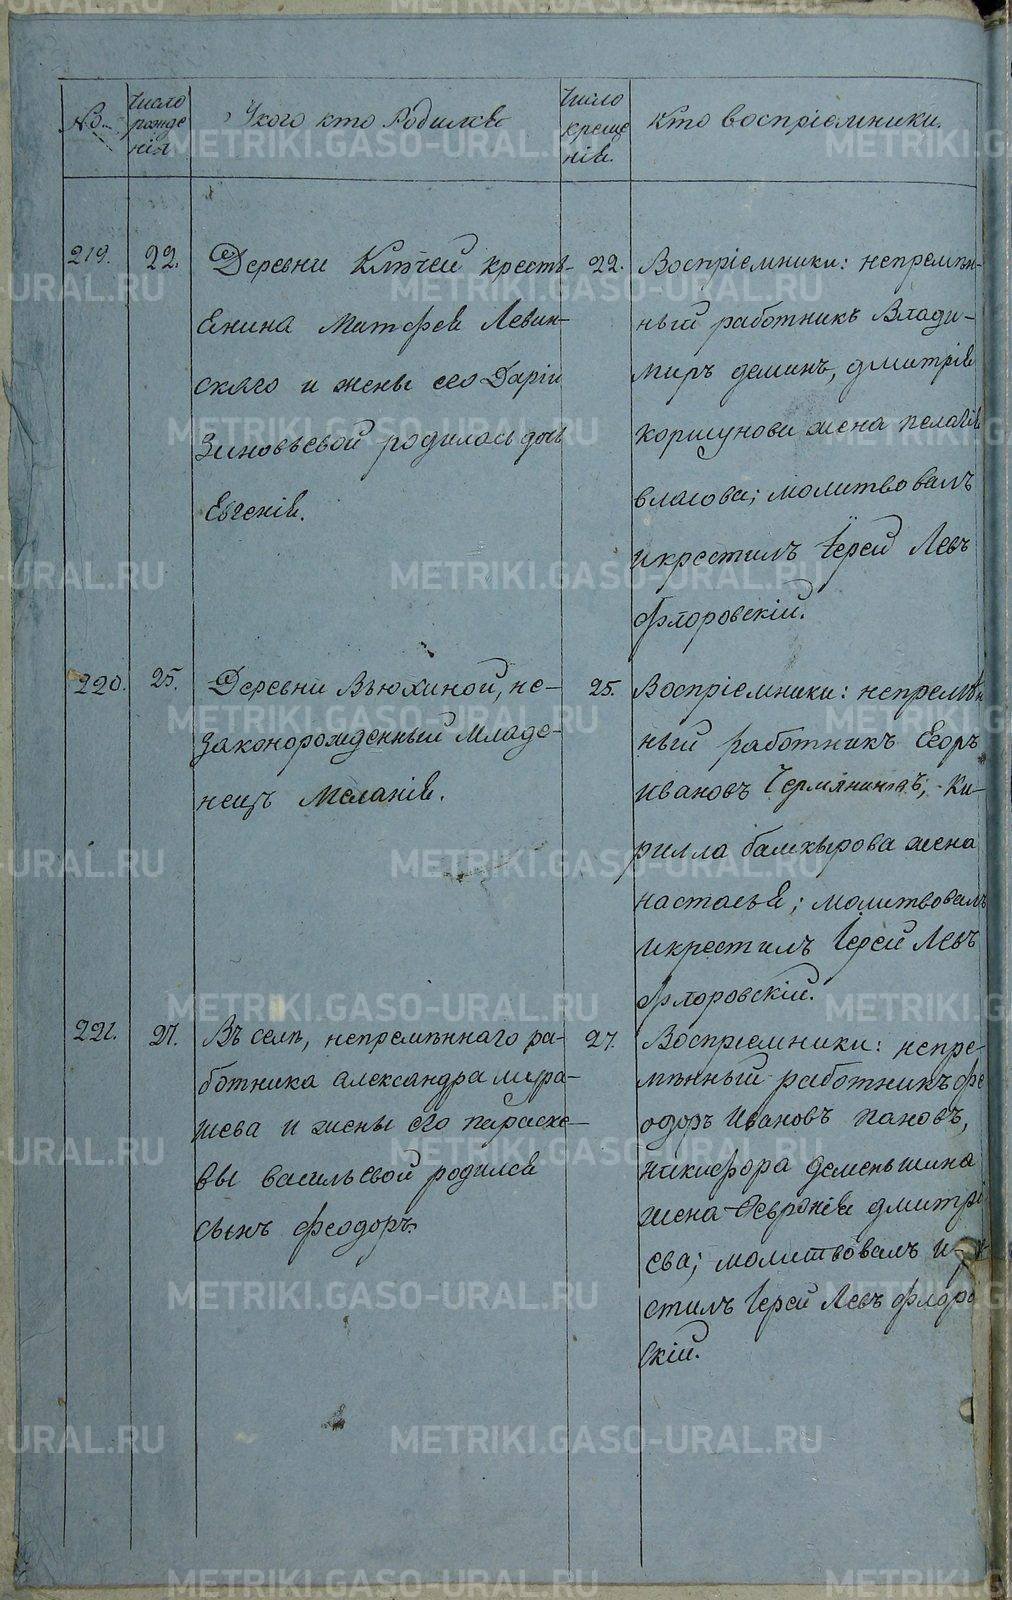 №
Число рожде нія
У кого кто Родился
Число креще нія.
Кто воспріемники.
219.
22.
Деревни Ключей кресть-
янина Матфея Левин-
скаго и жены его Даріи
Зиновьевой родилась дочь
Евгенія.
22.
Воспріемники: непремѣн-
ный работникъ Влади-
миръ деминъ, дмитрія
коршунова жена пелагія
власова; молитвовалъ
и крестилъ Іерей Левъ
Флоровскій.
220.
25.
Деревни Вьюхиной, не-
законорожденный младе-
нецъ Меланія.
25.
Воспріемники: непремѣн
ный работникъ Егоръ
Ивановъ Чермянинъ; Ки-
рилла башкырова жена
настасья; молитвовалъ
и крестилъ Іерей Левъ
Флоровскій.
221.
27.
Въ селѣ, непремѣннаго ра-
ботника александра мура-
шева и жены его параске-
вы васильевой родился
сынъ феодоръ.
27.
Воспріемники: непре-
мѣнный работникъ фе
одоръ Ивановъ пановъ,
никифора деменьшина
жена Февронія дмитрі
ева; молитвовалъ и
стилъ Іерей Левъ флоров
скій.